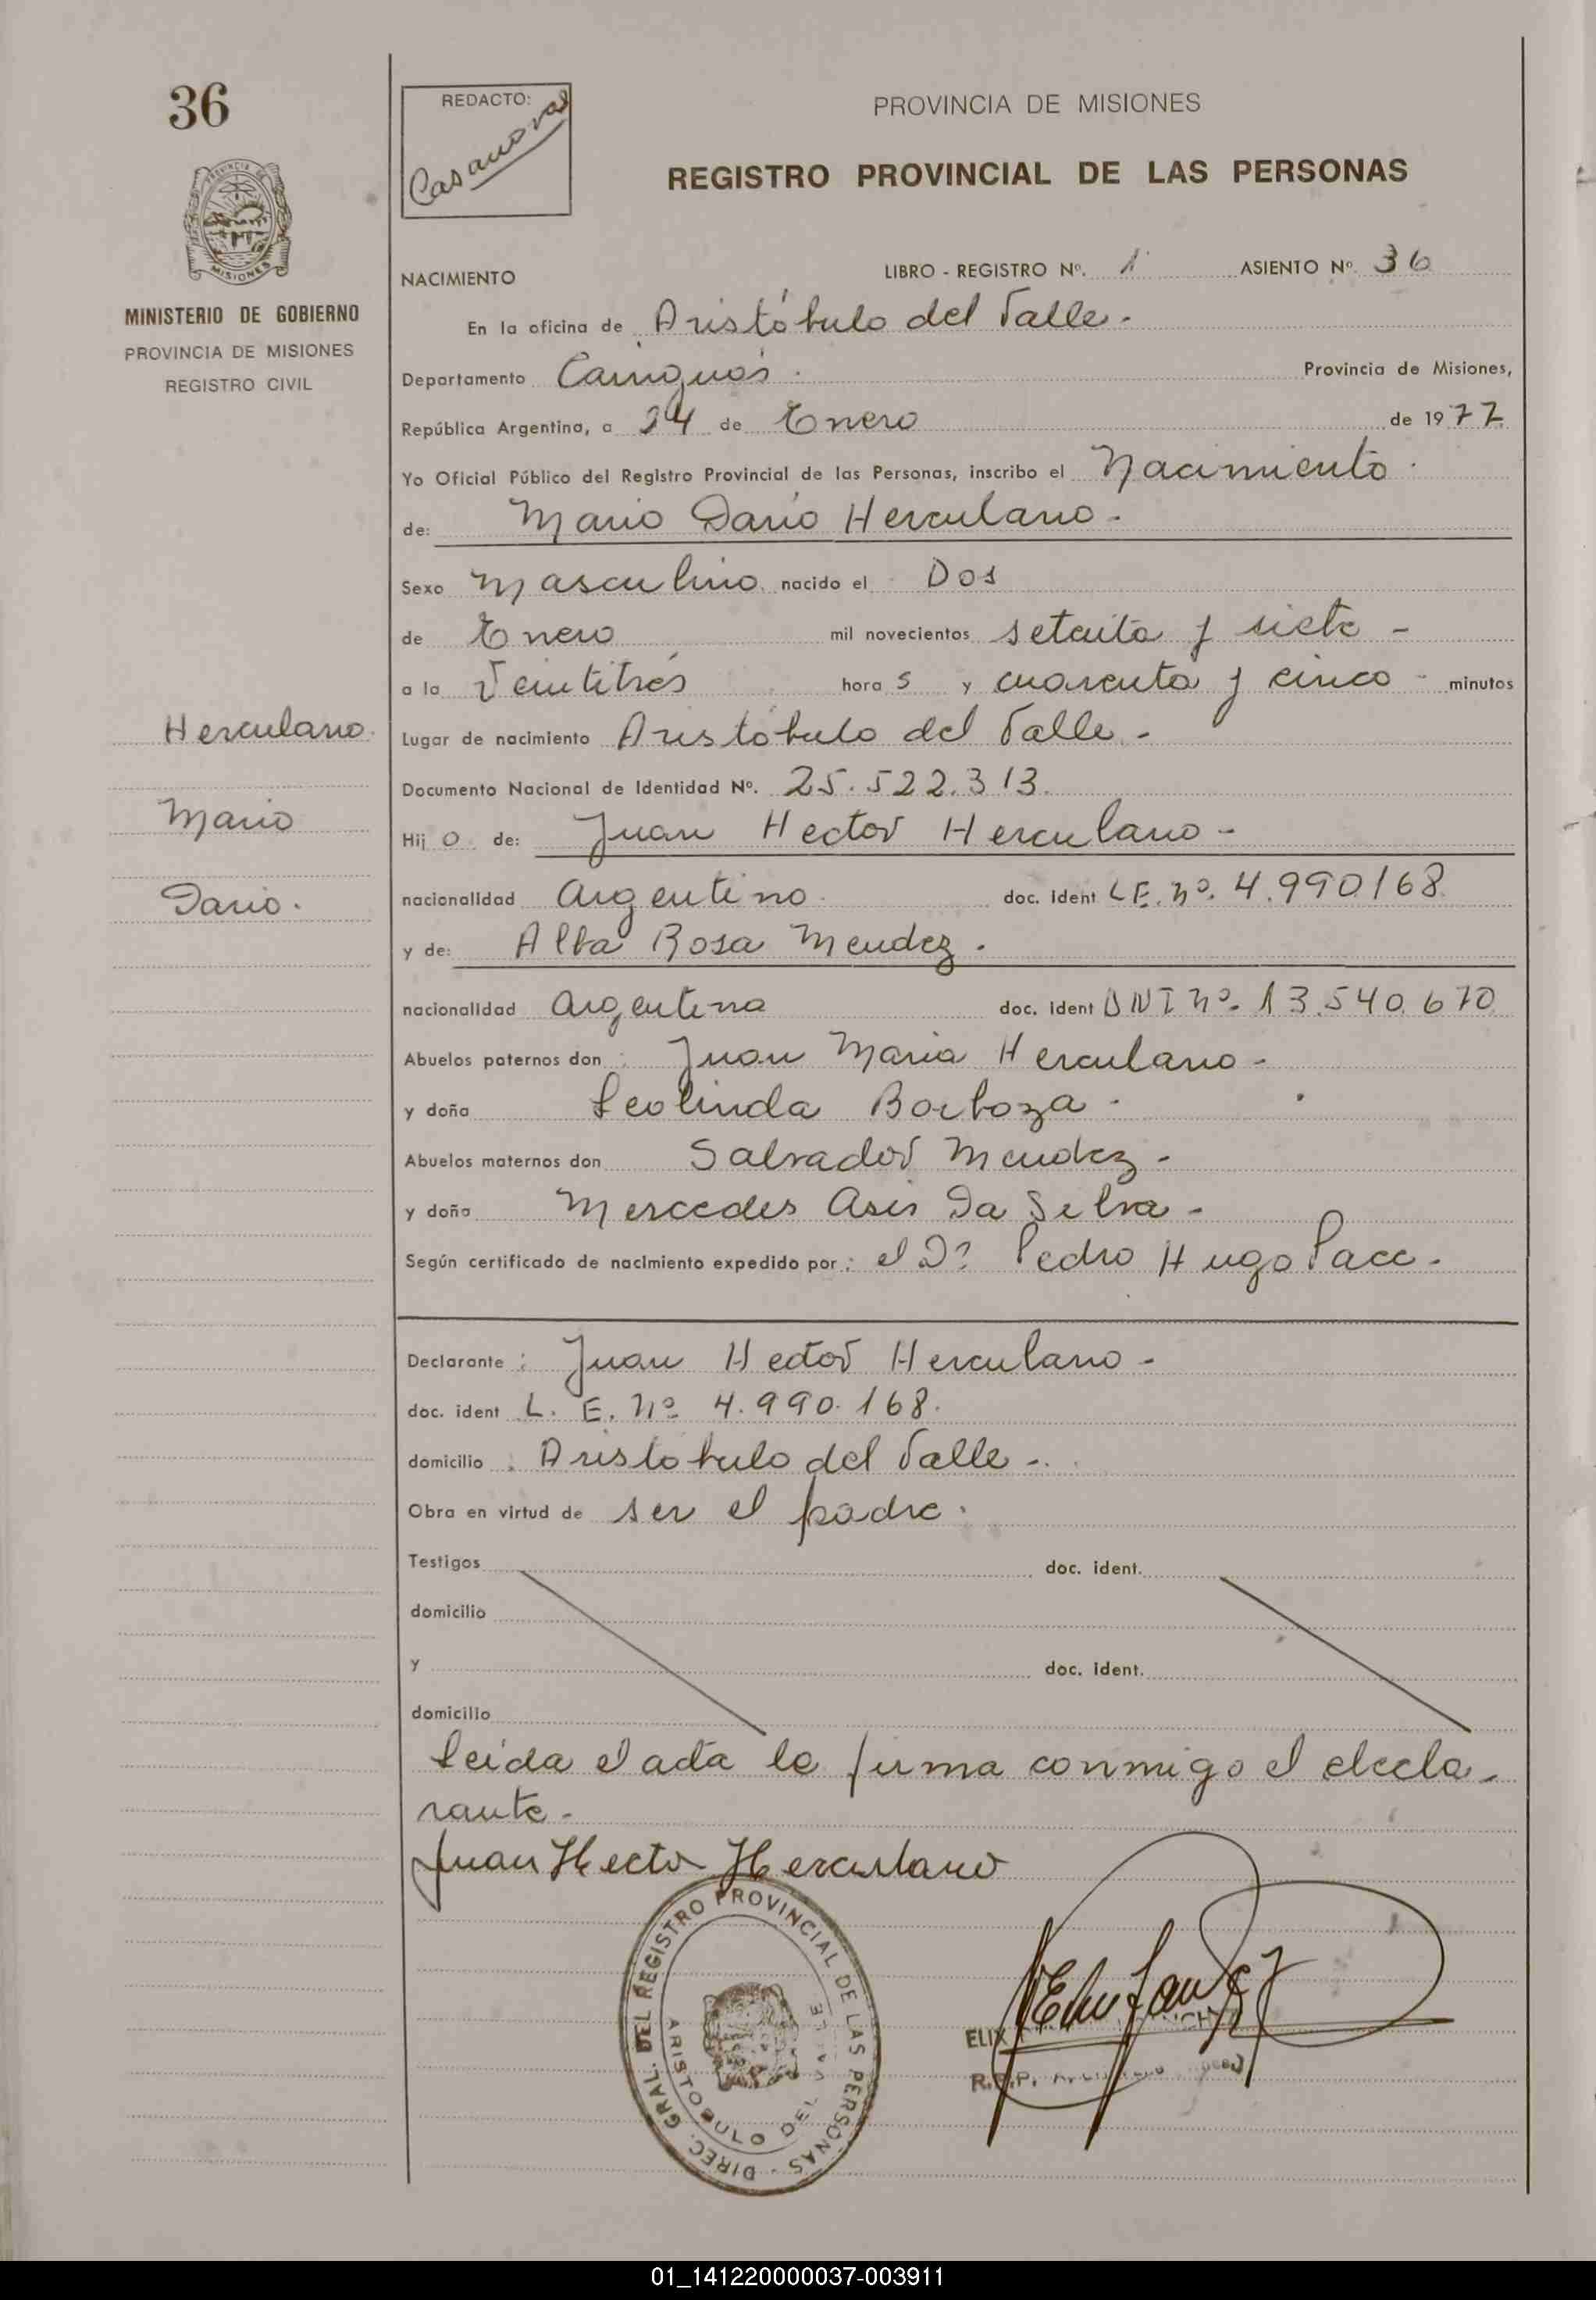 36
REDACTO:
Casanova
PROVINCIA DE MISIONES
REGISTRO PROVINCIAL DE LAS PERSONAS
MISIONES
MINISTERIO DE GOBIERNO
PROVINCIA DE MISIONES
REGISTRO CIVIL
NACIMIENTO
LIBRO - REGISTRO Nº. 1 ASIENTO Nº. 36
En la oficina de Aristóbulo del Valle.
Departamento Cainguás. Provincia de Misiones,
República Argentina, a 24 de Enero de 1977
Yo Oficial Público del Registro Provincial de las Personas, inscribo el Nacimiento.
de: Mario Darío Herculano.
Sexo Masculino. nacido el Dos
de Enero mil novecientos setenta y siete -
a la Veintitrés hora s y cuarenta y cinco - minutos
Lugar de nacimiento Aristóbulo del Valle. -
Documento Nacional de Identidad Nº. 25.522.313.
Hij o de: Juan Hector Herculano -
nacionalidad Argentino. doc. ident L.E. Nº. 4.990168.
y de: Alba Rosa Mendez.
nacionalidad Argentina doc. ident DNI Nº. 13.540.670
Abuelos paternos don : Juan Maria Herculano -
y doña Leolinda Barboza.
Abuelos maternos don Salvador Mendez -
y doña Mercedes Asis Da Silva -
Según certificado de nacimiento expedido por : el Dr. Pedro Hugo Pace -
Herculano.
Mario
Dario.
Declarante : Juan Hector Herculano -
doc. ident L. E. Nº 4.990.168.
domicilio : Aristobulo del Valle -.
Obra en virtud de ser el padre.
Testigos doc. ident.
domicilio
y doc. ident.
domicilio
Leida el acta la firma conmigo el decla-
rante -
Juan Hector Herculano
DIREC. GRAL. DEL REGISTRO PROVINCIAL DE LAS PERSONAS -
ARISTOBULO DEL VALLE
01_141220000037-003911